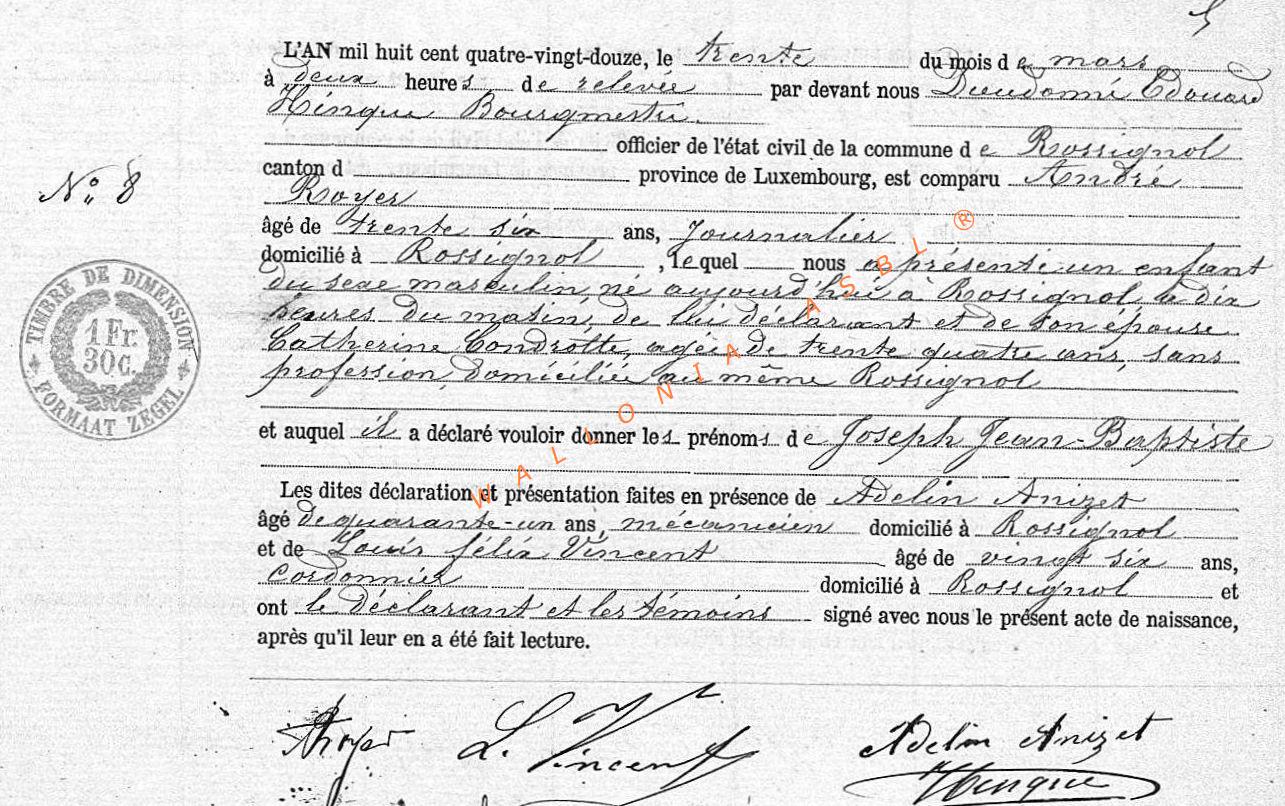 5
L'AN mil huit cent quatre-vingt-douze, le trente du mois de mars
à deux heures de relevée par devant nous Dieudonné Edouard
Hinque Bourgmestre.
officier de l'état civil de la commune de Rossignol
canton d' province de Luxembourg, est comparu André
Royer
N° 8
âgé de trente six ans, Journalier
domicilié à Rossignol, lequel nous a présenté un enfant
du sexe masculin, né aujourd'hui à Rossignol, à dix
heures du matin, de lui déclarant et de son épouse
Catherine Condrotte, agée de trente quatre ans, sans
profession, domiciliée au même Rossignol
et auquel il a déclaré vouloir donner les prénoms de Joseph Jean-Baptiste
Les dites déclaration et présentation faites en présence de Adelin Anizet
âgé de quarante-un ans, mécanicien domicilié à Rossignol
et de Louis félix Vincent âgé de vingt six ans,
cordonnier domicilié à Rossignol et
ont le déclarant et les témoins signé avec nous le présent acte de naissance,
après qu'il leur en a été fait lecture.
TIMBRE DE DIMENSION
1 Fr.
30c.
FORMAAT ZEGEL
WALLONIA ASBL ®
ARoyer L. Vincent Adelin Anizet
Hinque